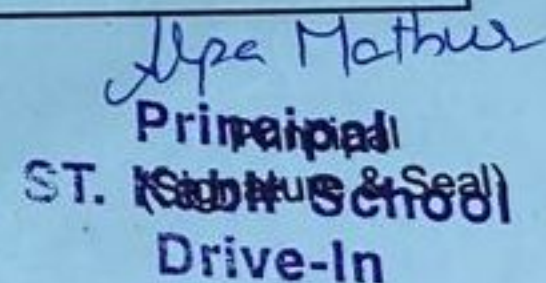 Alpa Mathur
Principal
Principal
ST. Kabir School
(Signature & Seal)
Drive-In